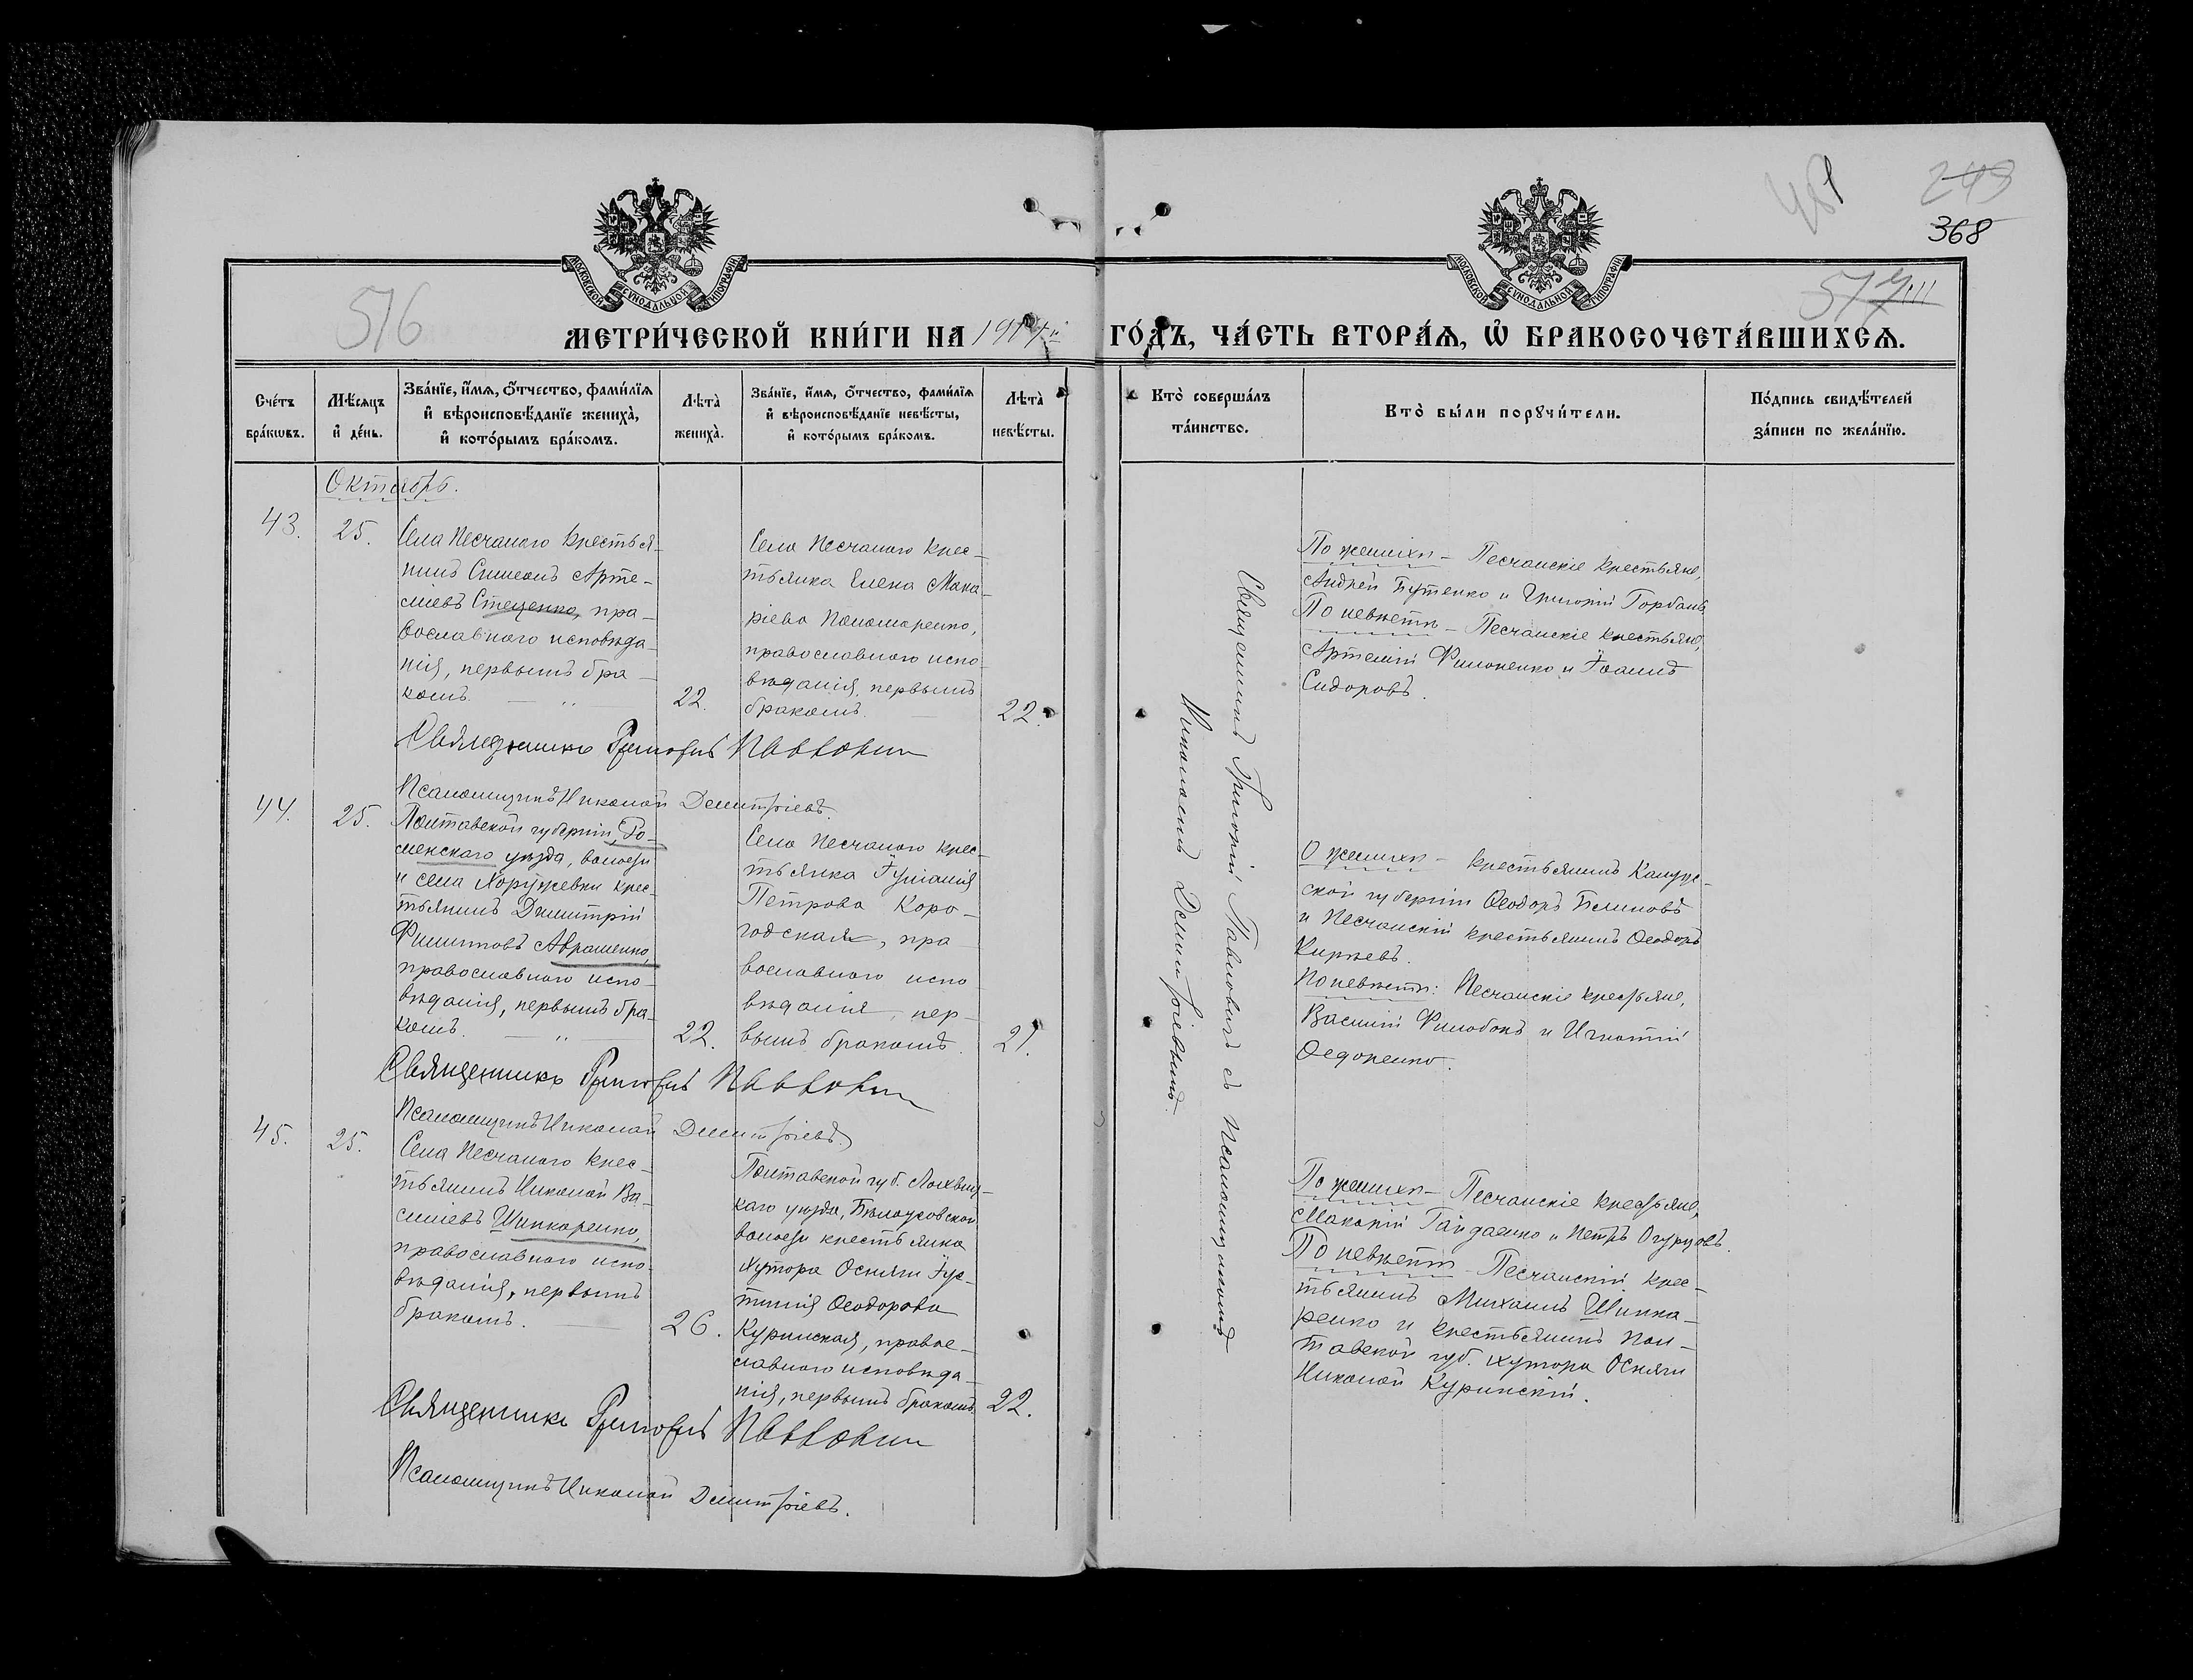 451
243
368
516
517
МОСКОВСКОЙ СѴНОДАЛЬНОЙ ТИПОГРАФІИ
МОСКОВСКОЙ СѴНОДАЛЬНОЙ ТИПОГРАФІИ
МЕТРИ́ЧЕСКОЙ КНИ́ГИ НА 1914й
ГО́ДЪ, ЧА́СТЬ ВТОРА́Ѧ, Ѡ҆ БРАКОСОЧЕТА́ВШИХСѦ.
Сче́тъ
бра́кωвъ.
Мѣ́сяцъ
и҆ де́нь.
Зва́нїе, и҆́мѧ, о҆́тчество, фами́лїѧ
и҆ вѣроисповѣ́данїе жениха̀,
и҆ кото́рымъ бра́комъ.
Лѣта̀
жениха̀.
Зва́нїе, и҆́мѧ, о҆́тчество, фами́лїѧ
и҆ вѣроисповѣ́данїе невѣ́сты,
и҆ кото́рымъ бра́комъ.
Лѣта̀
невѣ́сты.
Кто̀ соверша́лъ
та́инство.
Кто̀ бы́ли порꙋчи́тели.
По́дпись свидѣ́телей
за́писи по жела́нїю.
Октябрь.
43.
25.
Села Песчаного крестья-
нинъ Симеонъ Арте-
міевъ Стеценко, пра-
вославнаго исповѣда-
нія, первымъ бра-
комъ. — „ —
22.
Села Песчаного крес-
тьянка Елена Мака-
ріева Пономаренко,
православнаго испо-
вѣданія, первымъ
бракомъ. —
22.
По женихѣ — Песчанскіе крестьяне,
Андрей Бутенко и Григорій Горбань.
По невѣстѣ — Песчанскіе крестьяне,
Артемій Филоненко и Іоаннъ
Сидоровъ.
Священникъ Григорій Павлович
Псаломщикъ Николай Димитріевъ.
44.
25.
Полтавской губерніи, Ро-
менскаго уѣзда, волости
и села Хоружевки крес-
тьянинъ Димитрій
Филипповъ Авраменко,
православнаго испо-
вѣданія, первымъ бра-
комъ. — „ —
22.
Села Песчаного крес-
тьянка Іуліанія
Петрова Коро-
годская, пра-
вославнаго испо-
вѣданія, пер-
вымъ бракомъ.
21.
О женихѣ — крестьянинъ Калуж-
ской губерніи Ѳеодоръ Блиновъ
и Песчанскій крестьянинъ Ѳеодоръ
Кирѣевъ.
По невѣстѣ: Песчанскіе крестьяне,
Василій Филобокъ и Игнатій
Ѳедоренко.
Священникъ Григорій Павлович
Псаломщикъ Николай Димитріевъ.
45.
25.
Села Песчаного крес-
тьянинъ Николай Ва-
силіевъ Шинкаренко,
православнаго испо-
вѣданія, первымъ
бракомъ. —
26.
Полтавской губ. Лохвиц-
каго уѣзда, Бѣлоусовской
волости крестьянка
хутора Осняги Іус-
тинія Ѳеодорова
Куринская, право-
славнаго исповѣда-
нія, первымъ бракомъ.
22.
По женихѣ — Песчанскіе крестьяне,
Макарій Гайдаенко и Петръ Огурцовъ.
По невѣстѣ — Песчанскій крес-
тьянинъ Михаилъ Шинка-
ренко и крестьянинъ Пол-
тавской губ. хутора Осняги
Николай Куринскій.
Священникъ Григорій Павлович
Псаломщикъ Николай Димитріевъ.
Священникъ Григорій Павловичъ съ псаломщикомъ
Николаемъ Димитріевымъ.